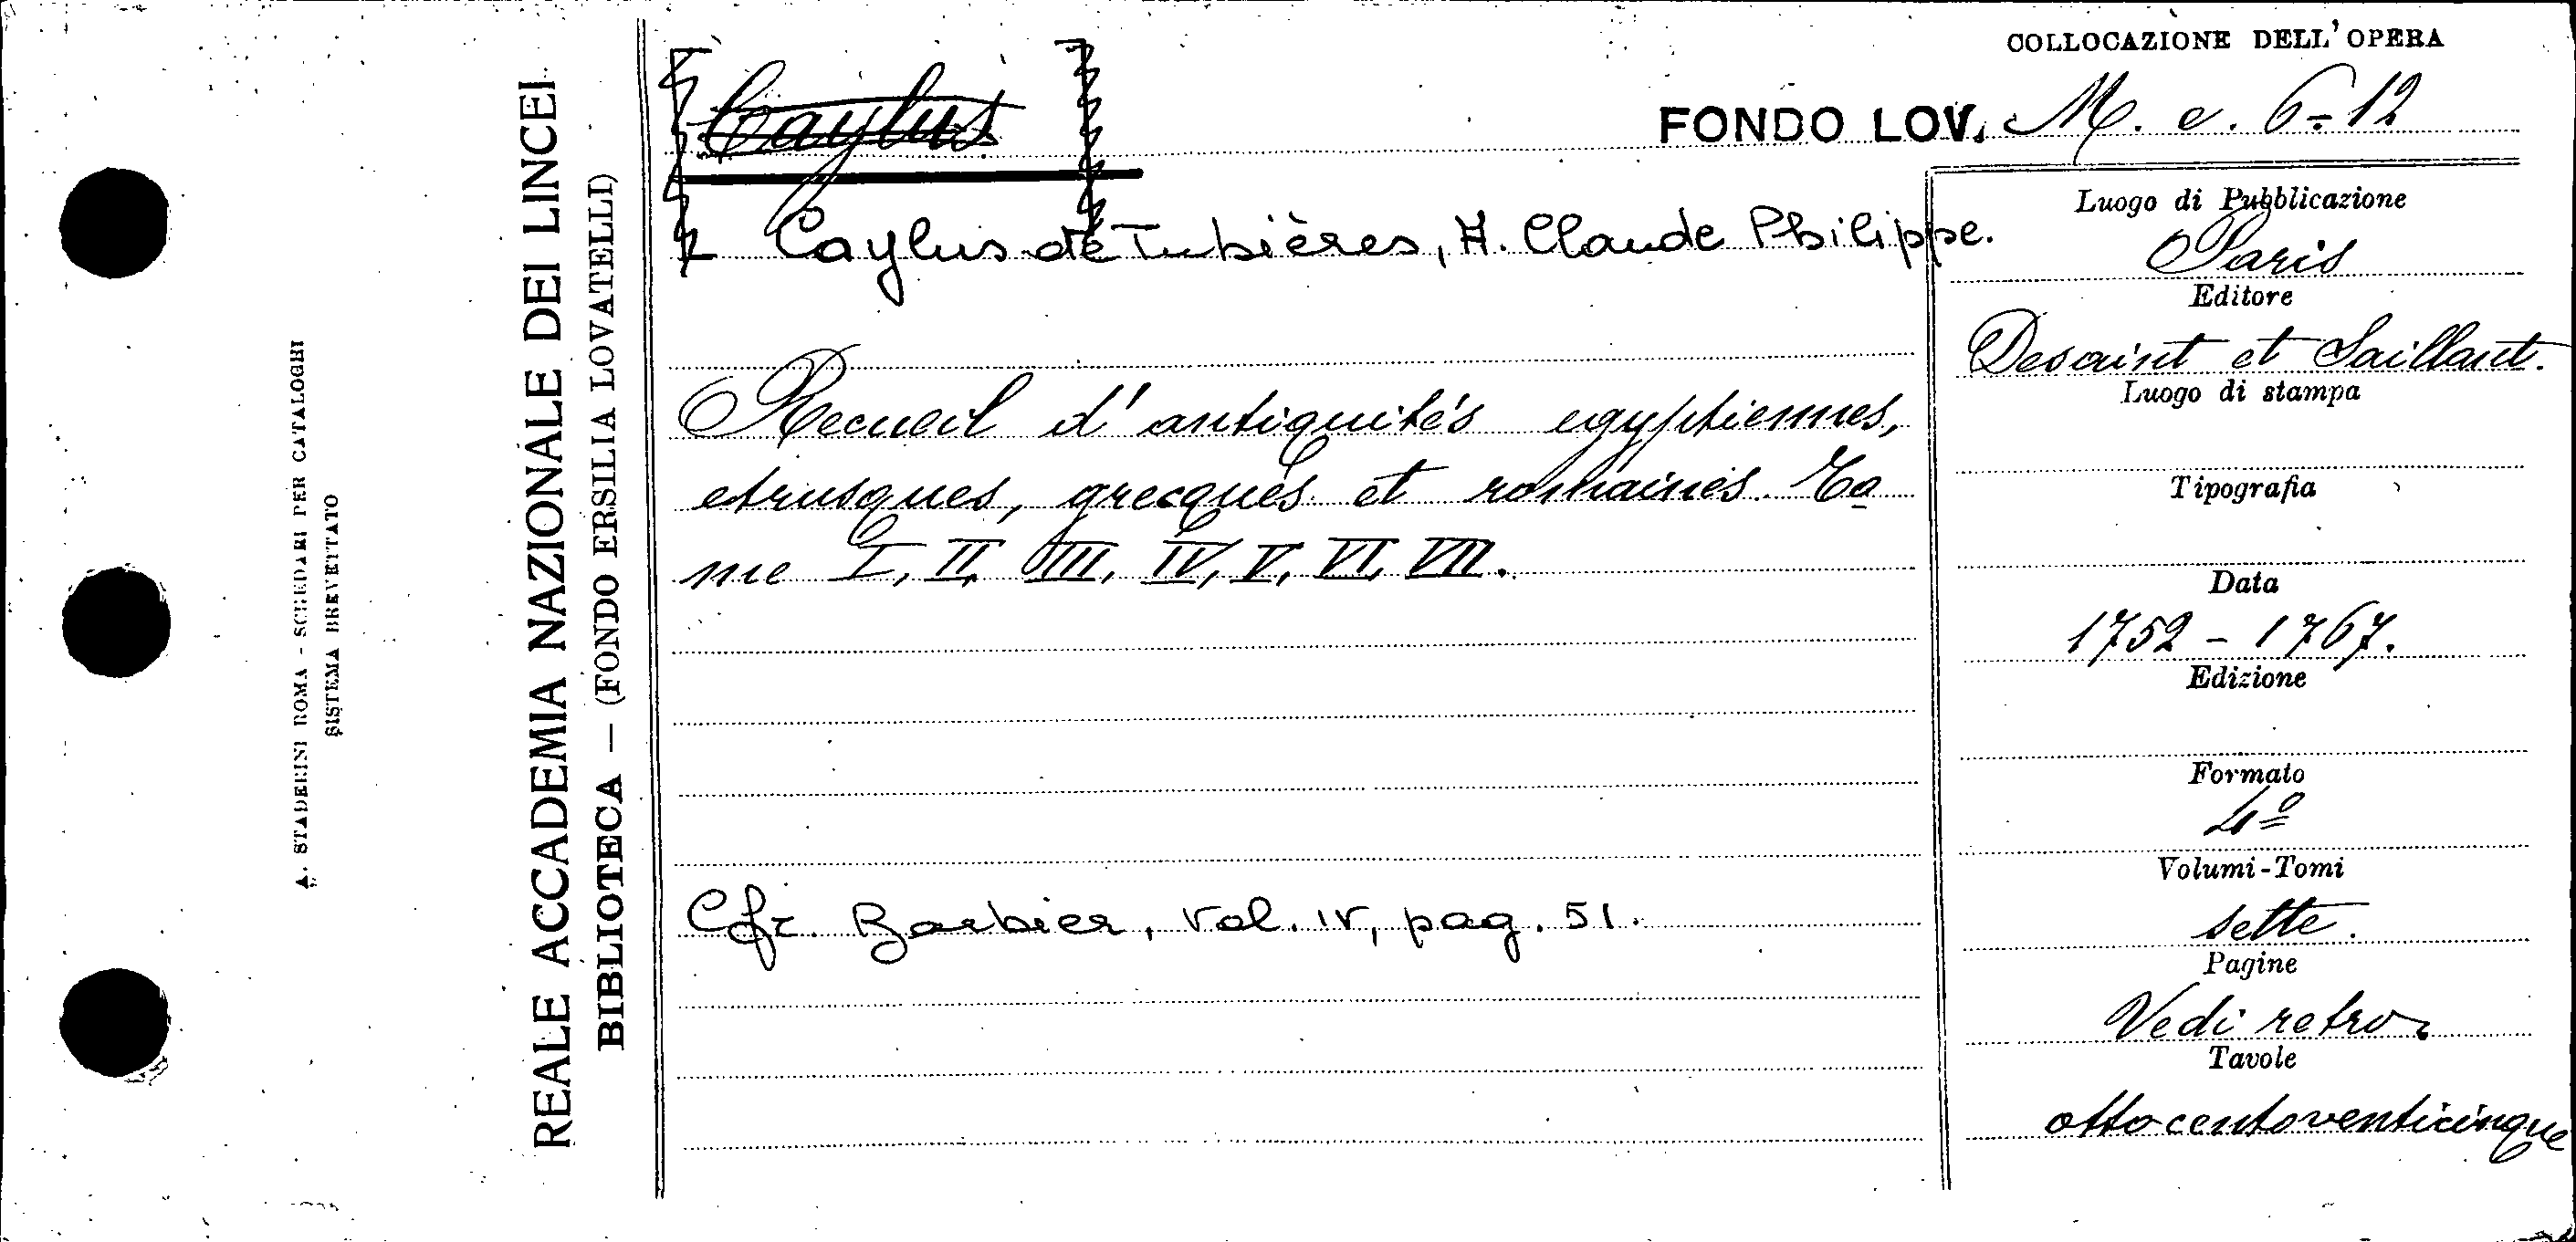 COLLOCAZIONE DELL'OPERA
FONDO LOV. M. e. 6-12
Caylus
Caylus de Tubières, A. Claude Philippe.
Recueil d'antiquités egyptiennes,
etrusques, grecques et romaines. To
me I, II, III, IV, V, VI, VII.
Cfr. Barbier, vol. IV, pag. 51.
Luogo di Pubblicazione
Paris
Editore
Desaint et Saillant.
Luogo di stampa
Tipografia
Data
1752 - 1767.
Edizione
Formato
4º
Volumi-Tomi
sette.
Pagine
Vedi retro
Tavole
ottocentoventicinque
REALE ACCADEMIA NAZIONALE DEI LINCEI
BIBLIOTECA — (FONDO ERSILIA LOVATELLI)
A. STADERINI ROMA - SCHEDARI PER CATALOGHI
SISTEMA BREVETTATO